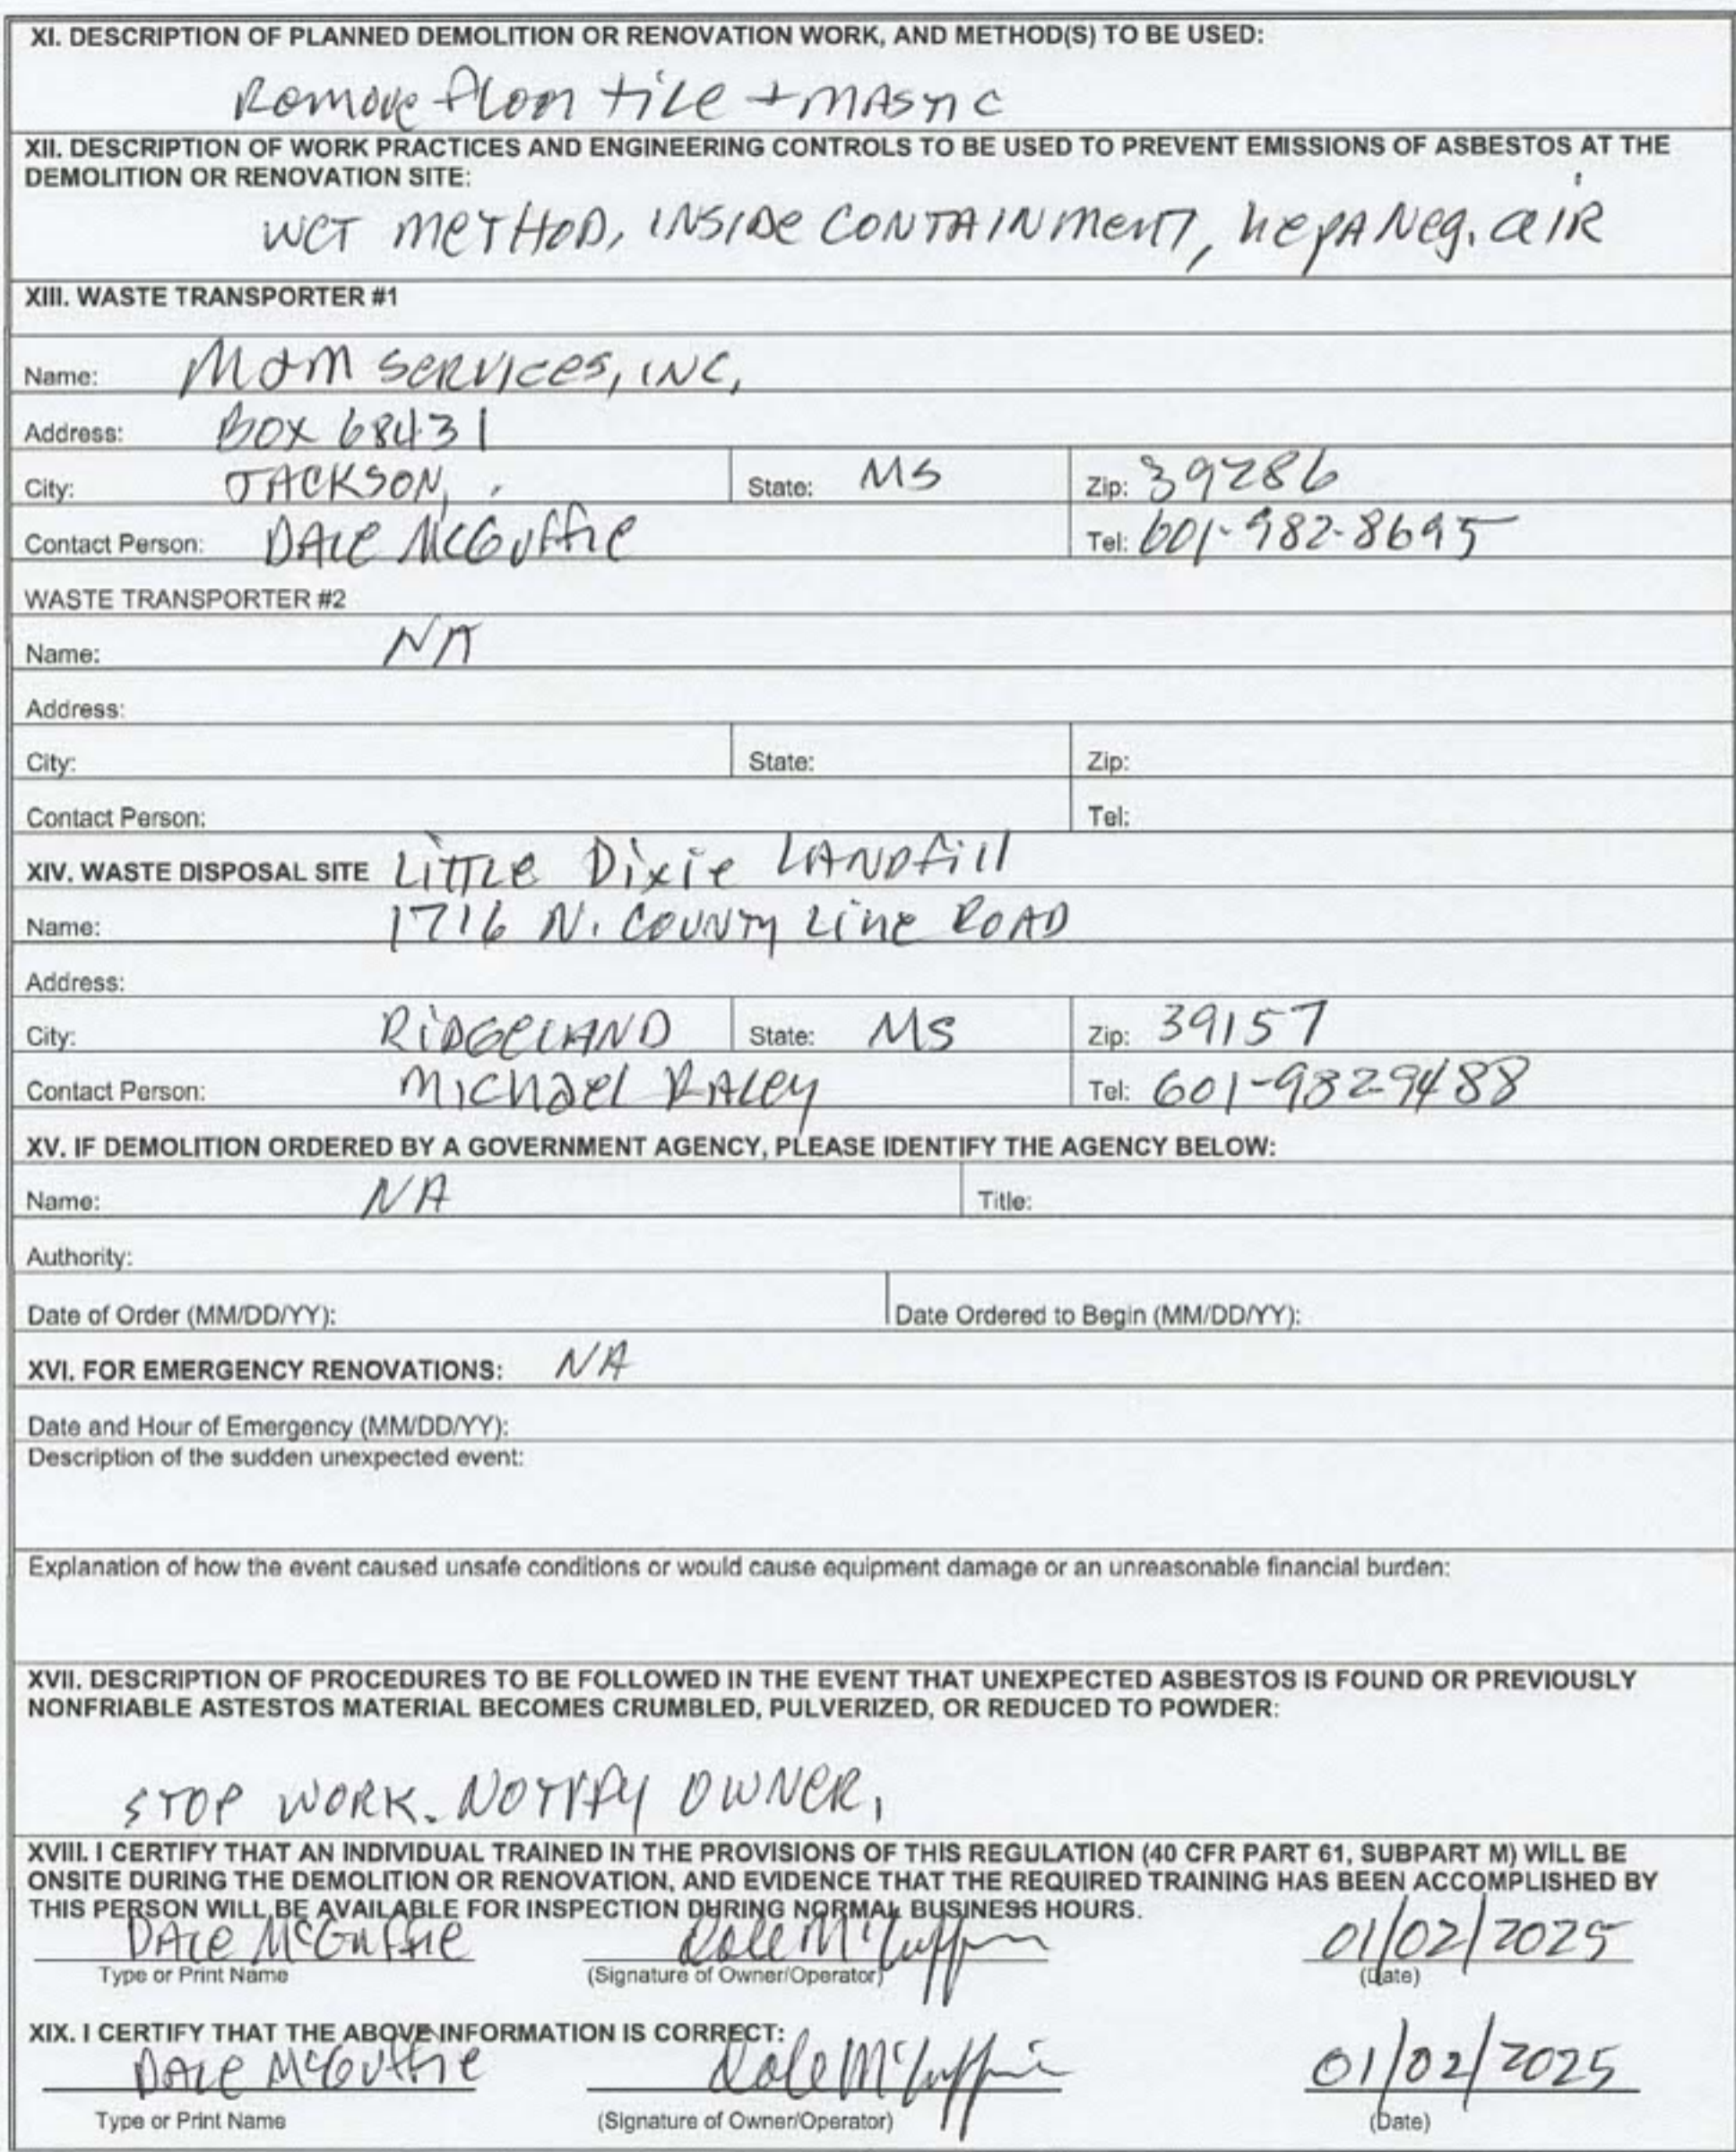 XI. DESCRIPTION OF PLANNED DEMOLITION OR RENOVATION WORK, AND METHOD(S) TO BE USED:
Remove floor tile + MASTIC
XII. DESCRIPTION OF WORK PRACTICES AND ENGINEERING CONTROLS TO BE USED TO PREVENT EMISSIONS OF ASBESTOS AT THE
DEMOLITION OR RENOVATION SITE:
WET METHOD, INSIDE CONTAINMENT, hepA Neg. AIR
XIII. WASTE TRANSPORTER #1
Name: M&M SERVICES, INC,
Address: BOX 68431
City: JACKSON, State: MS Zip: 39286
Contact Person: DALE McGuffie Tel: 601-982-8695
WASTE TRANSPORTER #2
Name: NA
Address:
City: State: Zip:
Contact Person: Tel:
XIV. WASTE DISPOSAL SITE LITTLE Dixie LANDfill
Name: 1716 N. COUNTY Line ROAD
Address:
City: RIDGELAND State: MS Zip: 39157
Contact Person: Michael RALEY Tel: 601-9829488
XV. IF DEMOLITION ORDERED BY A GOVERNMENT AGENCY, PLEASE IDENTIFY THE AGENCY BELOW:
Name: NA Title:
Authority:
Date of Order (MM/DD/YY): Date Ordered to Begin (MM/DD/YY):
XVI. FOR EMERGENCY RENOVATIONS: NA
Date and Hour of Emergency (MM/DD/YY):
Description of the sudden unexpected event:
Explanation of how the event caused unsafe conditions or would cause equipment damage or an unreasonable financial burden:
XVII. DESCRIPTION OF PROCEDURES TO BE FOLLOWED IN THE EVENT THAT UNEXPECTED ASBESTOS IS FOUND OR PREVIOUSLY
NONFRIABLE ASTESTOS MATERIAL BECOMES CRUMBLED, PULVERIZED, OR REDUCED TO POWDER:
STOP WORK. NOTIFY OWNER.
XVIII. I CERTIFY THAT AN INDIVIDUAL TRAINED IN THE PROVISIONS OF THIS REGULATION (40 CFR PART 61, SUBPART M) WILL BE
ONSITE DURING THE DEMOLITION OR RENOVATION, AND EVIDENCE THAT THE REQUIRED TRAINING HAS BEEN ACCOMPLISHED BY
THIS PERSON WILL BE AVAILABLE FOR INSPECTION DURING NORMAL BUSINESS HOURS.
DALE McGuffie Dale McGuffie 01/02/2025
Type or Print Name (Signature of Owner/Operator) (Date)
XIX. I CERTIFY THAT THE ABOVE INFORMATION IS CORRECT:
DALE McGuffie Dale McGuffie 01/02/2025
Type or Print Name (Signature of Owner/Operator) (Date)